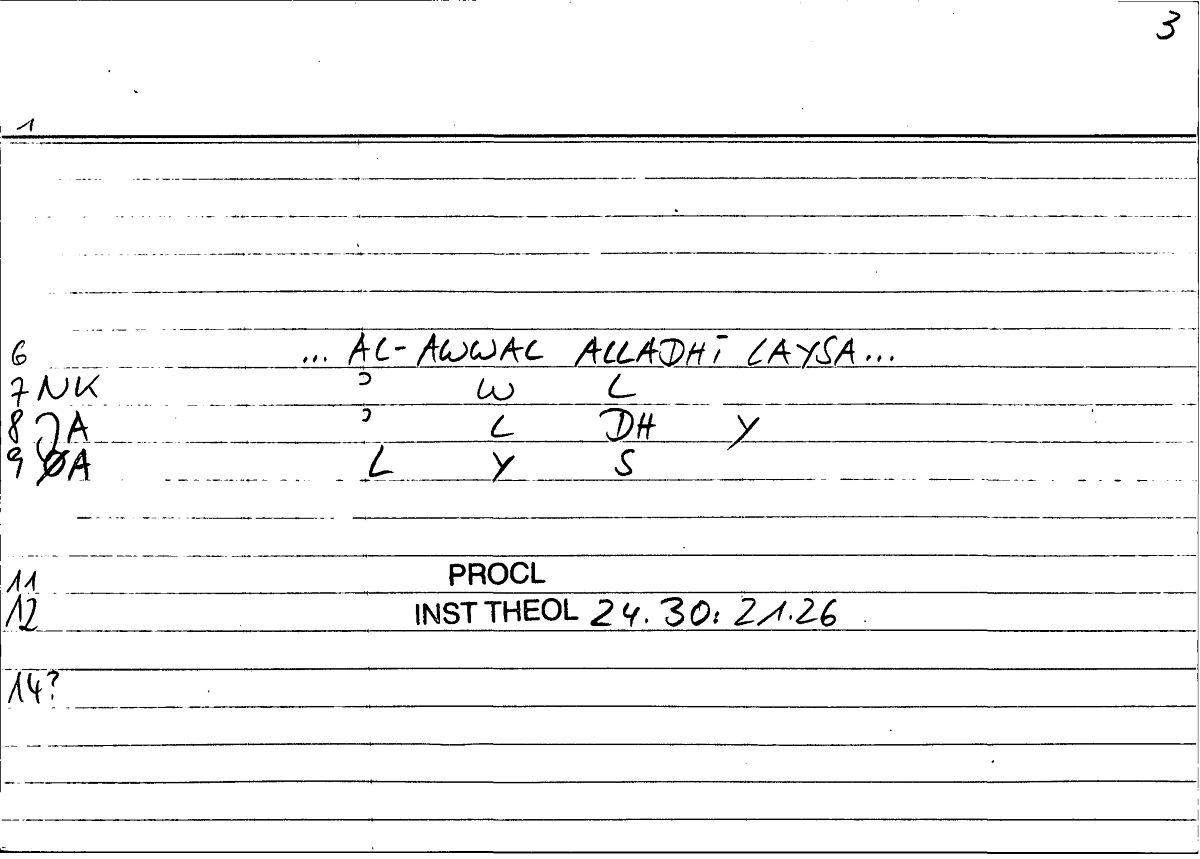 3
1
6 ... AL-AWWAL ALLADHĪ LAYSA...
7 NK ʾ W L
8 A ʾ L DH Y
9 A L Y S
11 PROCL
12 INST THEOL 24.30: 21.26
14?